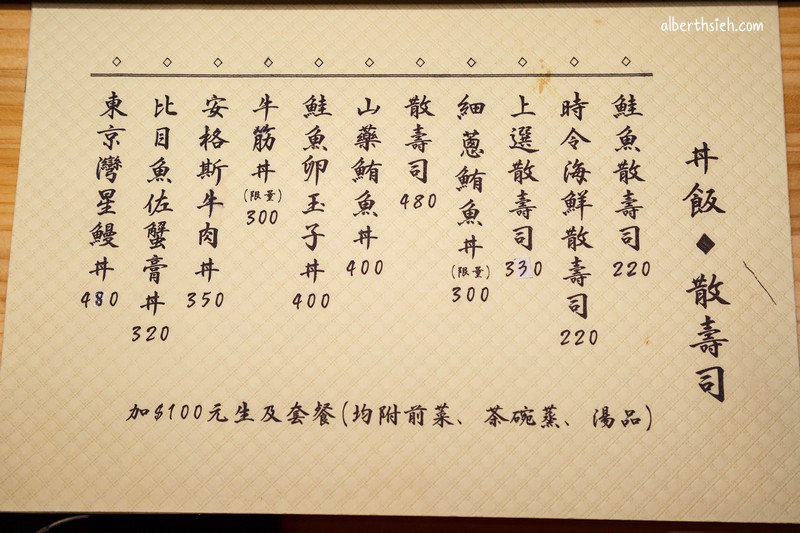 alberthsieh.com
丼飯◆散壽司
鮭魚散壽司 220
時令海鮮散壽司 220
上選散壽司 330
細蔥鮪魚丼(限量) 300
散壽司 480
山藥鮪魚丼 400
鮭魚卵玉子丼 400
牛筋丼(限量) 300
安格斯牛肉丼 350
比目魚佐蟹膏丼 320
東京灣星鰻丼 480
加$100元生及套餐(均附前菜、茶碗蒸、湯品)